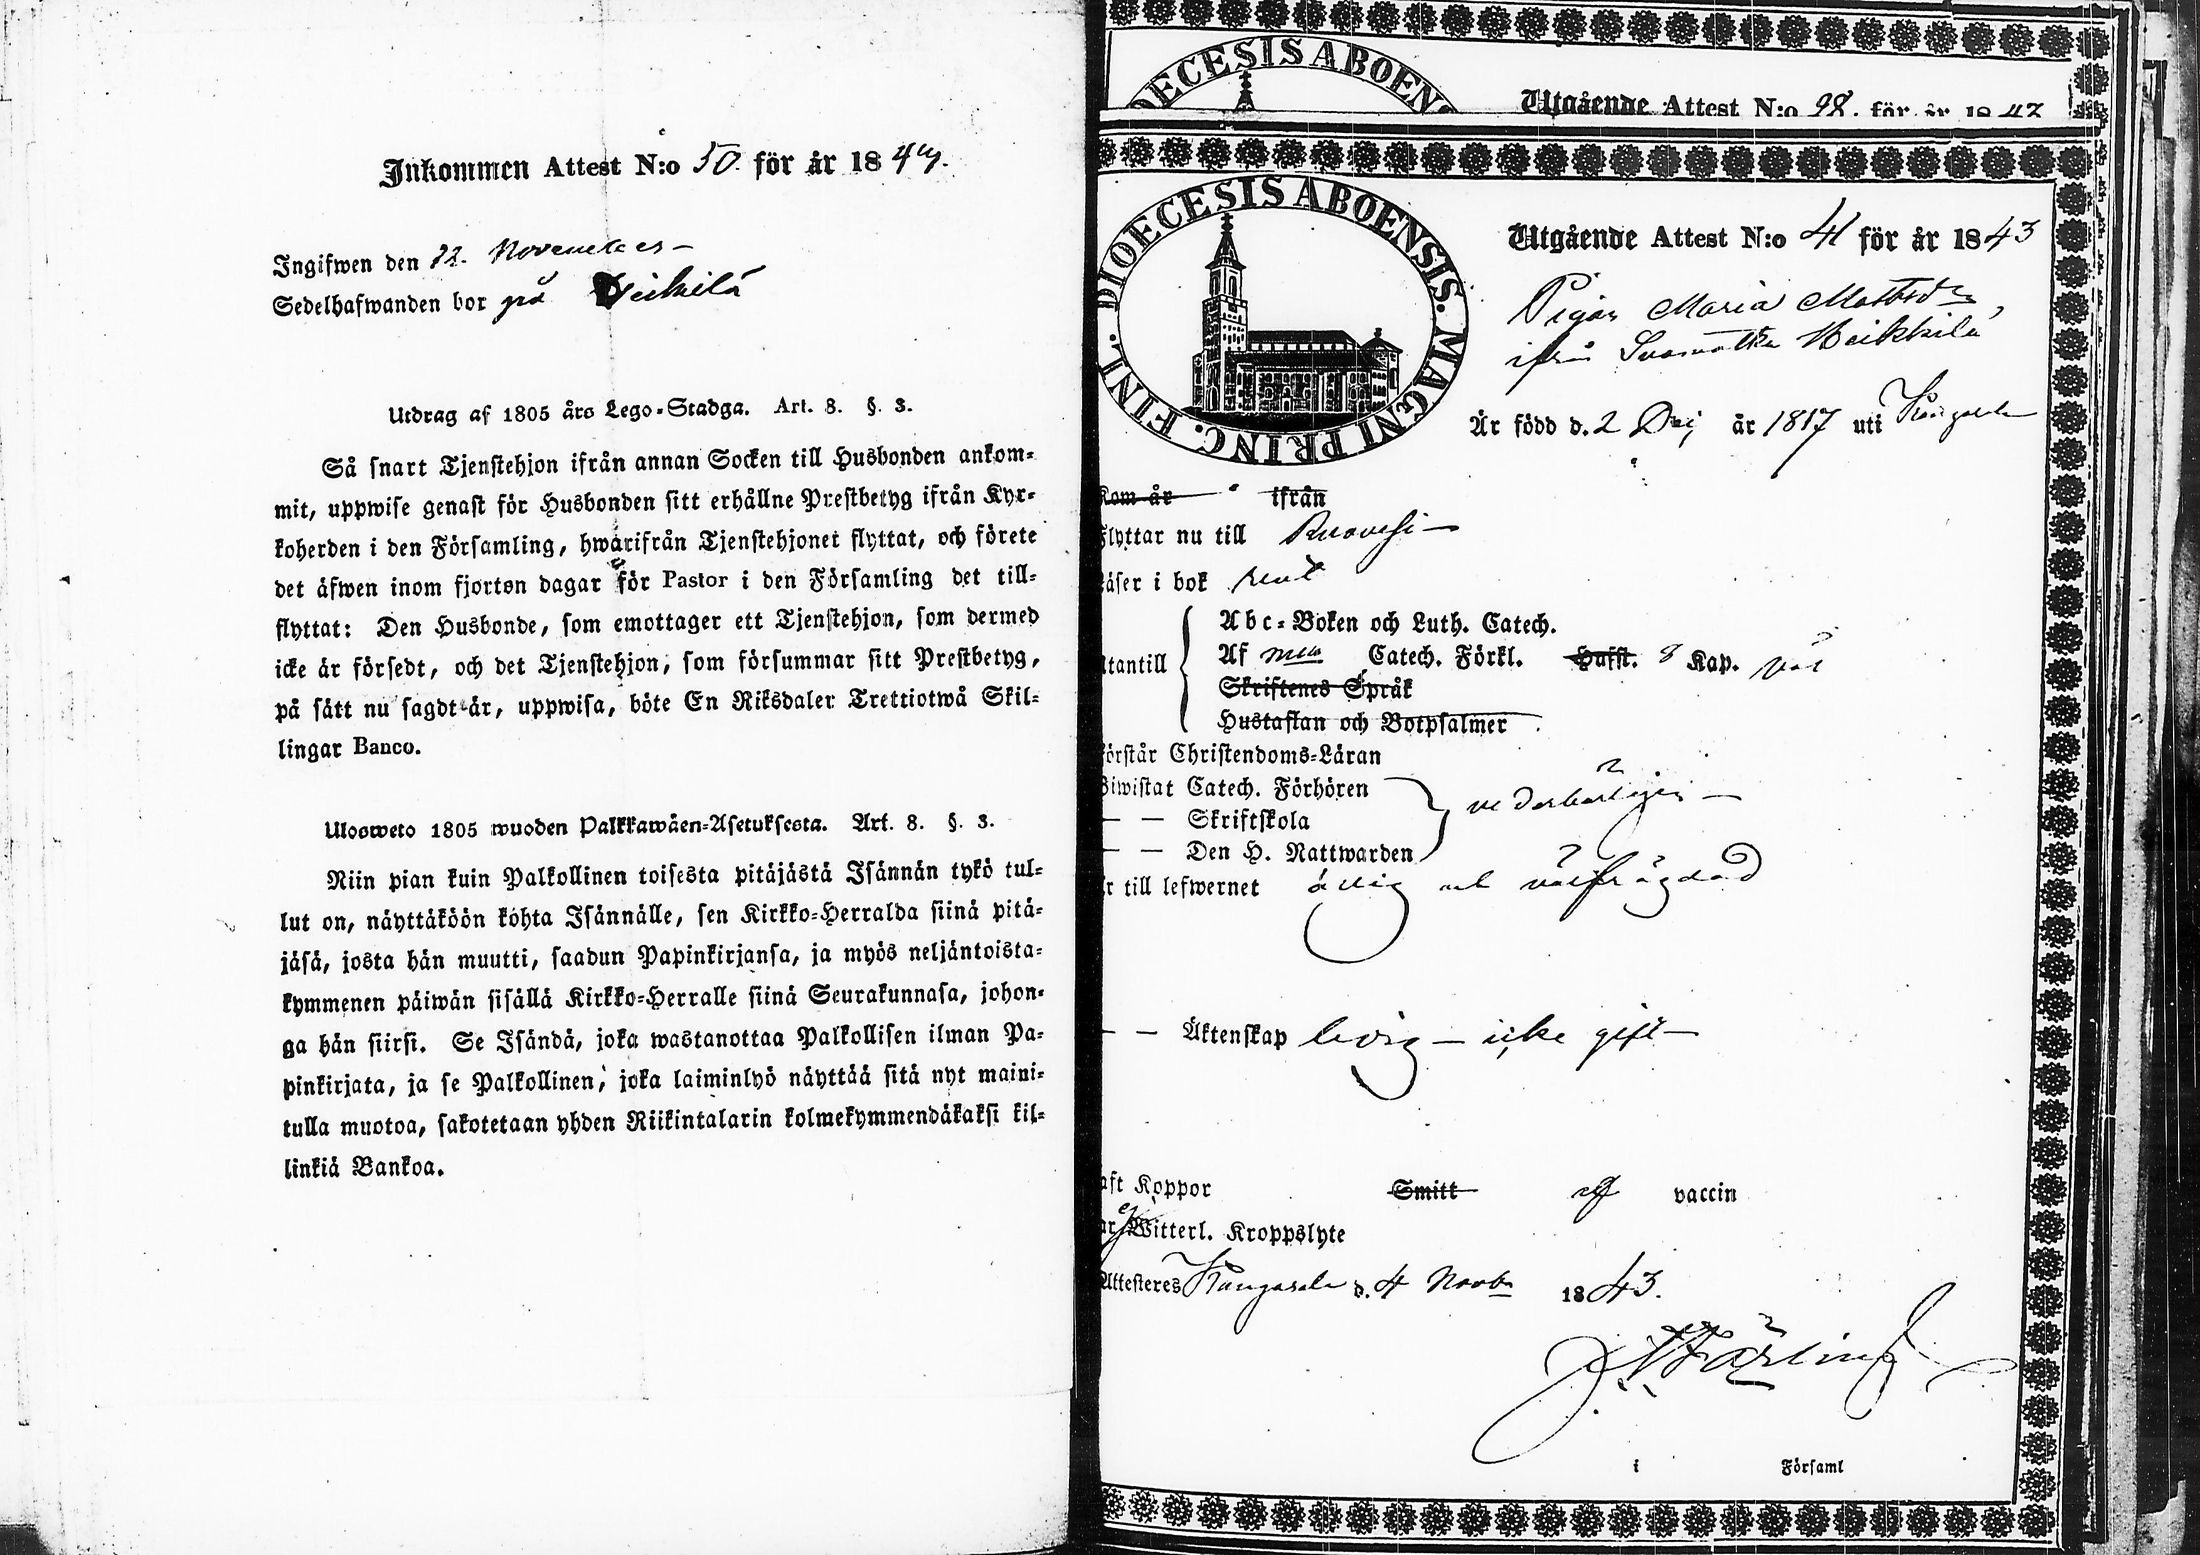 Inkommen Attest N:o 50 för år 184
Ingifwen den 12. November
Sedelhafwanden bor på Heikilä
Utdrag af 1805 års Lego-Stadga. Art. 8. §. 3.
Så snart Tjenstehjon ifrån annan Socken till Husbonden ankom-
mit, uppwise genast för Husbonden sitt erhållne Prestbetyg ifrån Kyr-
koherden i den Församling, hwarifrån Tjenstehjonet flyttat, och förete
det äfwen inom fjorton dagar för Pastor i den Församling det till-
flyttat: Den Husbonde, som emottager ett Tjenstehjon, som dermed
icke är försedt, och det Tjenstehjon, som försummar sitt Prestbetyg,
på sätt nu sagdt är, uppwisa, böte En Riksdaler Trettiotwå Skil-
lingar Banco.
Ulosweto 1805 wuoden Palkkawäen-Asetuksesta. Art. 8. §. 3.
Niin pian kuin Palkollinen toisesta pitäjästä Isännän tykö tul-
lut on, näyttäköön kohta Isännälle, sen Kirkko-Herralda siinä pitä-
jäsä, josta hän muutti, saadun Papinkirjansa, ja myös neljäntoista-
kymmenen päiwän sisällä Kirkko-Herralle siinä Seurakunnasa, johon-
ga hän siirsi. Se Isändä, joka wastanottaa Palkollisen ilman Pa-
pinkirjata, ja se Palkollinen, joka laiminlyö näyttää sitä nyt maini-
tulla muotoa, sakotetaan yhden Riikintalarin kolmekymmendäkaksi kil-
linkiä Bankoa.
DIOECESIS ABOENS
Utgående Attest N:o 98. för år 1847
DIOECESIS ABOENSIS. MAGNI PRINC. FINL.
Utgående Attest N:o 41 för år 1843
Pigan Maria Mattsdr
ifrån Suomatka Heikkilä
Är född d. 2 Dec; år 1817 uti Kangasala
Kom år ifrån
Flyttar nu till Ruovesi
Läser i bok rent
Utantill
Abc-Boken och Luth. Catech.
Af Catech. Förkl. Hufst. 8 Kap. väl
Skriftenes Språk
Hustaflan och Botpsalmer
Förstår Christendoms-Läran
Biwistat Catech. Förhören
— — Skriftskola
— — Den H. Nattwarden
vederbörligen
r till lefwernet ärlig och välfrägdad
— — Äktenskap ledig – icke gift –
aft Koppor Smitt af vaccin
ar ej Witterl. Kroppslyte
Attesteres Kangasala d. 4 Novbr 1843.
i Församl